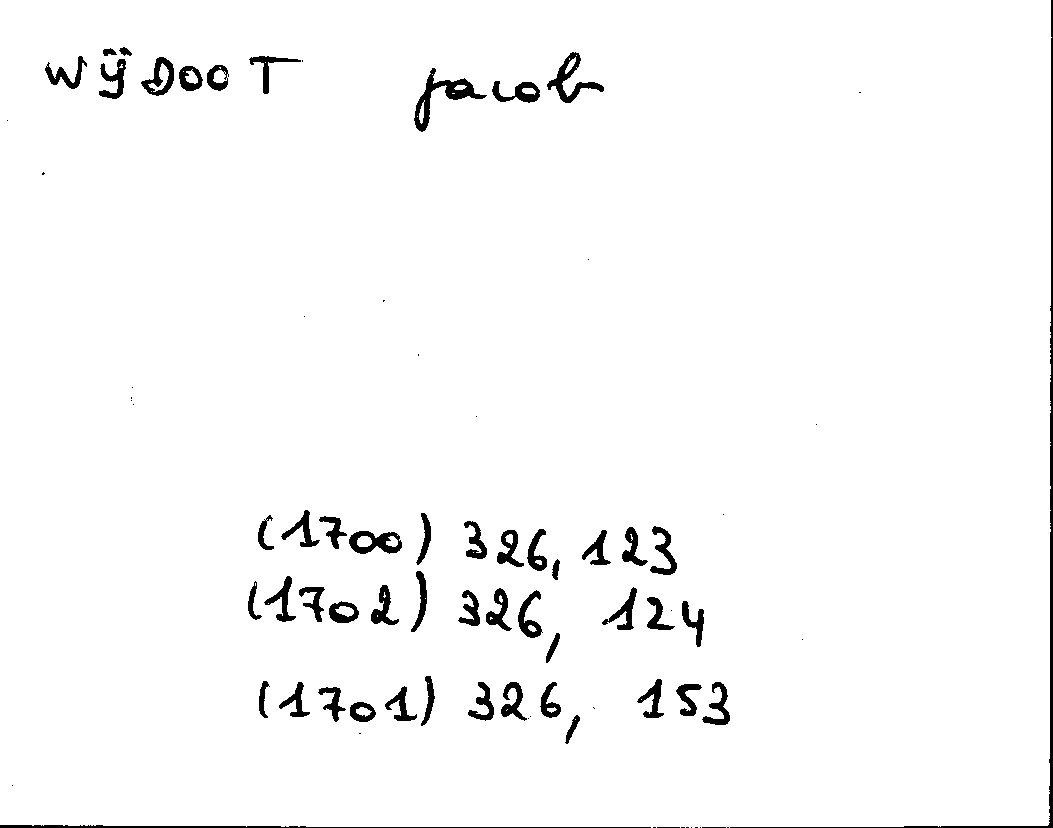 WŸDOOT jacob
(1700) 326, 123
(1702) 326, 124
(1701) 326, 153